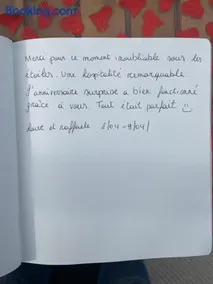 Booking.com
Merci pour ce moment inoubliable sous les
étoiles. Une hospitalité remarquable
J'anniversaire surprise a bien fonctionné
grâce à vous. Tout était parfait ☺
Laure et raffaele 8/04-9/04/